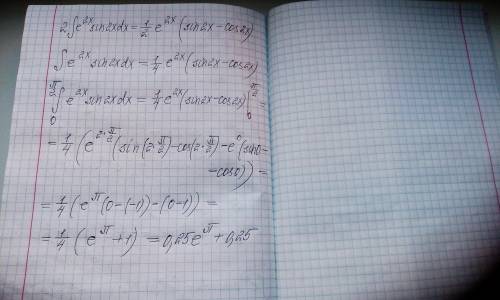 2∫e^{2x} sin2xdx = 1/2 e^{2x} (sin2x-cos2x)
∫e^{2x} sin2xdx = 1/4 e^{2x} (sin2x-cos2x)
∫_0^{π/2} e^{2x} sin2xdx = 1/4 e^{2x} (sin2x-cos2x)|_0^{π/2} =
= 1/4 (e^{2·π/2} (sin(2·π/2)-cos(2·π/2)-e^0(sin0-
-cos0)) =
= 1/4 (e^π (0-(-1))-(0-1)) =
= 1/4 (e^π+1) = 0,25e^π+0,25